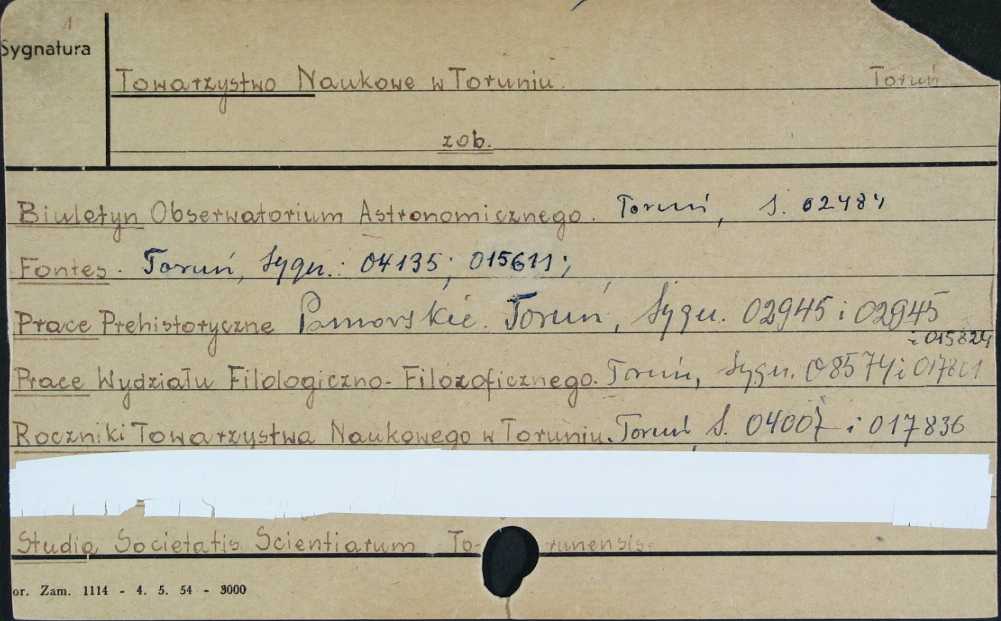 1
Sygnatura
Towarzystwo Naukowe w Toruniu. Toruń
zob.
Biuletyn Obserwatorium Astronomicznego. Toruń, S. 02484
Fontes. Toruń, Sygn.: 04135; 015611;
Prace Prehistoryczne Pomorskie. Toruń, Sygn. 02945 i 02945
i 015824
Prace Wydziału Filologiczno-Filozoficznego. Toruń, Sygn. 08574 i
Roczniki Towarzystwa Naukowego w Toruniu. Toruń S. 04007 i 017836
Studia Societatis Scientiarum To- runensis.
or. Zam. 1114 - 4. 5. 54 - 3000